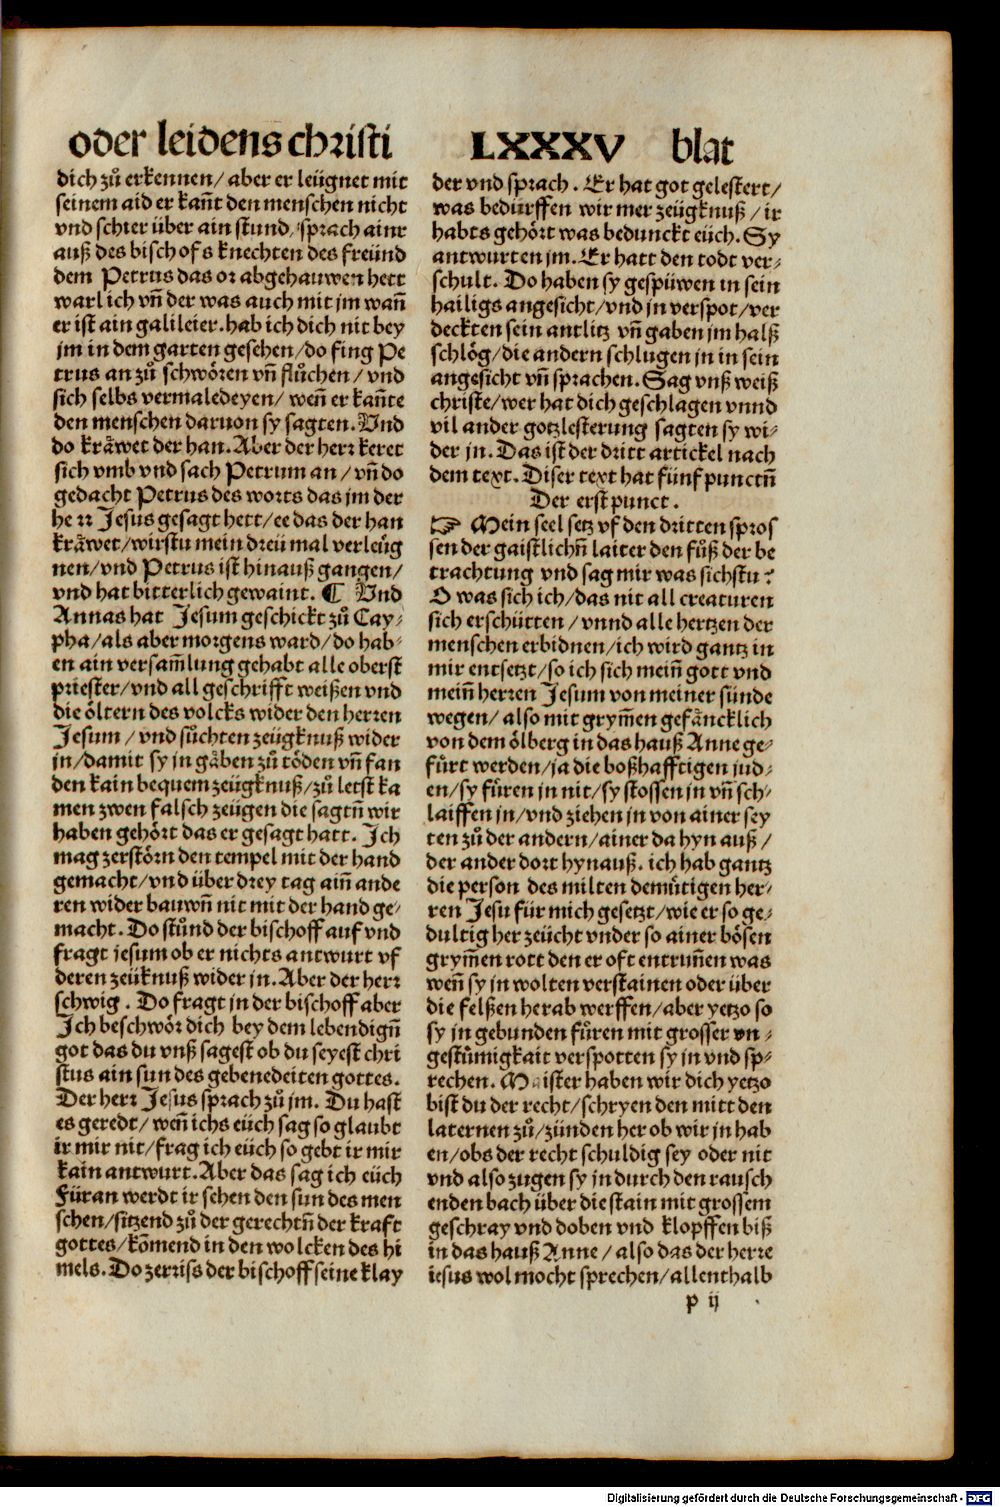 oder leidens christi
LXXXV blat
dich zů erkennen/ aber er leügnet mit
seinem aid er kañt den menschen nicht
vnd schier über ain stund/ sprach ainr
auß des bischofs knechten des freünd
dem Petrus das or abgehauwen hett
warlich vñ der was auch mit jm wañ
er ist ain galileier. hab ich dich nit bey
jm in dem garten gesehen/do fing Pe
trus an zů schwören vñ flůchen / vnd
sich selbs vermaledeyen/ weñ er kañte
den menschen daruon sy sagten. Vnd
do kråwet der han. Aber der herr keret
sich vmb vnd sach Petrum an / vñ do
gedacht Petrus des worts das jm der
herr Jesus gesagt hett/ee das der han
kråwet/wirstu mein dreü mal verleüg
nen/vnd Petrus ist hinauß gangen/
vnd hat bitterlich gewaint. ¶ Vnd
Annas hat Jesum geschickt zů Cay⸗
pha/als aber morgens ward/do hab⸗
en ain versam̃lung gehabt alle oberst
priester/vnd all geschrifft weißen vnd
die öltern des volcks wider den herren
Jesum / vnd sůchten zeügknuß wider
jn/damit sy jn gåben zů töden vñ fan
den kain bequem zeügknuß/zů letst ka
men zwen falsch zeügen die sagtñ wir
haben gehört das er gesagt hatt. Ich
mag zerstörn den tempel mit der hand
gemacht/vnd über drey tag aiñ ande
ren wider bauwñ nit mit der hand ge⸗
macht. Do stůnd der bischoff auf vnd
fragt jesum ob er nichts antwurt vf
deren zeüknuß wider jn. Aber der herr
schwig. Do fragt jn der bischoff aber
Ich beschwör dich bey dem lebendigñ
got das du vnß sagest ob du seyest chri
stus ain sun des gebenedeiten gottes.
Der herr Jesus sprach zů jm. Du hast
es geredt/ weñ ichs eüch sag so glaubt
ir mir nit/frag ich eüch so gebt ir mir
kain antwurt. Aber das sag ich eüch
Füran werdt ir sehen den sun des men
schen/sitzend zů der gerechtñ der kraft
gottes/kom̃end in den wolcken des hi
mels. Do zerriss der bischoff seine klay
der vnd sprach. Er hat got gelestert/
was bedürffen wir mer zeügknuß / ir
habts gehört was bedunckt eüch. Sy
antwurten jm. Er hatt den todt ver⸗
schult. Do haben sy gespüwen in sein
hailigs angesicht/vnd jn verspot/ver
deckten sein antlitz vñ gaben jm halß
schlög/die andern schlugen jn in sein
angesicht vñ sprachen. Sag vnß weiß
christe/wer hat dich geschlagen vnnd
vil ander gotzlesterung sagten sy wi⸗
der jn. Das ist der dritt artickel nach
dem text. Diser text hat fünf punctñ
Der erst punct.
☞ Mein seel setz vf den dritten spros
sen der gaistlichñ laiter den fůß der be
trachtung vnd sag mir was sichstu?
O was sich ich/das nit all creaturen
sich erschütten / vnnd alle hertzen der
menschen erbidnen/ich wird gantz in
mir entsetzt/so ich sich meiñ gott vnd
meiñ herren Jesum von meiner sünde
wegen/ also mit grym̃en gefåncklich
von dem ölberg in das hauß Anne ge⸗
fůrt werden/ja die boßhafftigen jud⸗
en/sy füren jn nit/sy stossen jn vñ sch⸗
laiffen jn/vnd ziehen jn von ainer sey
ten zů der andern/ainer da hyn auß /
der ander dort hynauß. ich hab gantz
die person des milten demůtigen her⸗
ren Jesu für mich gesetzt/wie er so ge⸗
dultig her zeücht vnder so ainer bösen
grym̃en rott den er oft entruñen was
weñ sy jn wolten verstainen oder über
die felßen herab werffen/aber yetzo so
sy jn gebunden fůren mit grosser vn⸗
gestůmigkait verspotten sy jn vnd sp⸗
rechen. Maister haben wir dich yetzo
bist du der recht/schryen den mitt den
laternen zů/zünden her ob wir jn hab
en/obs der recht schuldig sey oder nit
vnd also zugen sy jn durch den rausch
enden bach über die stain mit grossem
geschray vnd doben vnd klopffen biß
in das hauß Anne / also das der herre
iesus wol mocht sprechen/allenthalb
p ij
Digitalisierung gefördert durch die Deutsche Forschungsgemeinschaft - DFG